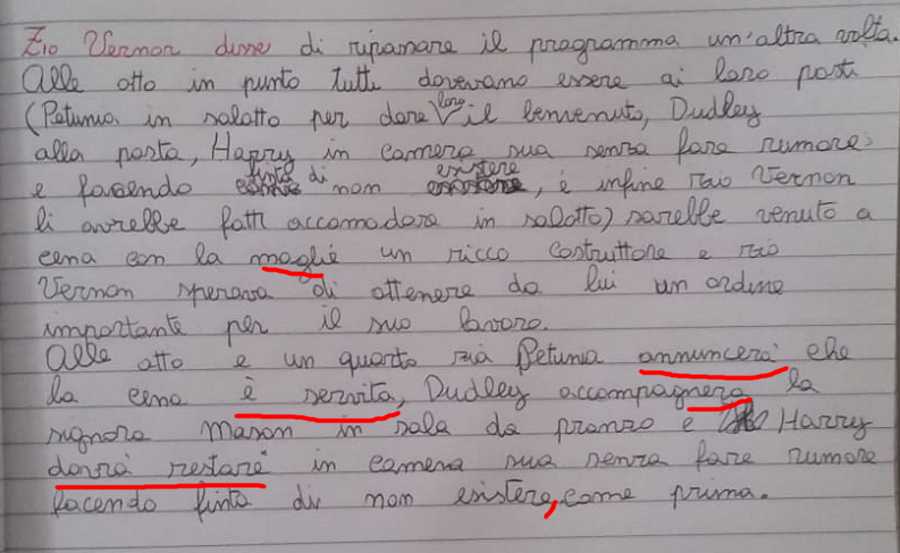 Zio Vernon disse di ripassare il programma un'altra volta.
Alle otto in punto tutti dovevano essere ai loro posti
(Petunia in salotto per dare loro il benvenuto, Dudley
alla porta, Harry in camera sua senza fare rumore
e facendo finta di non esistere, e infine zio Vernon
li avrebbe fatti accomodare in salotto) sarebbe venuto a
cena con la moglie un ricco costruttore e zio
Vernon sperava di ottenere da lui un ordine
importante per il suo lavoro.
Alle otto e un quarto zia Petunia annuncerà che
la cena è servita, Dudley accompagnera la
signora Mason in sala da pranzo e Harry
dovrà restare in camera sua senza fare rumore
facendo finta di non esistere, come prima.